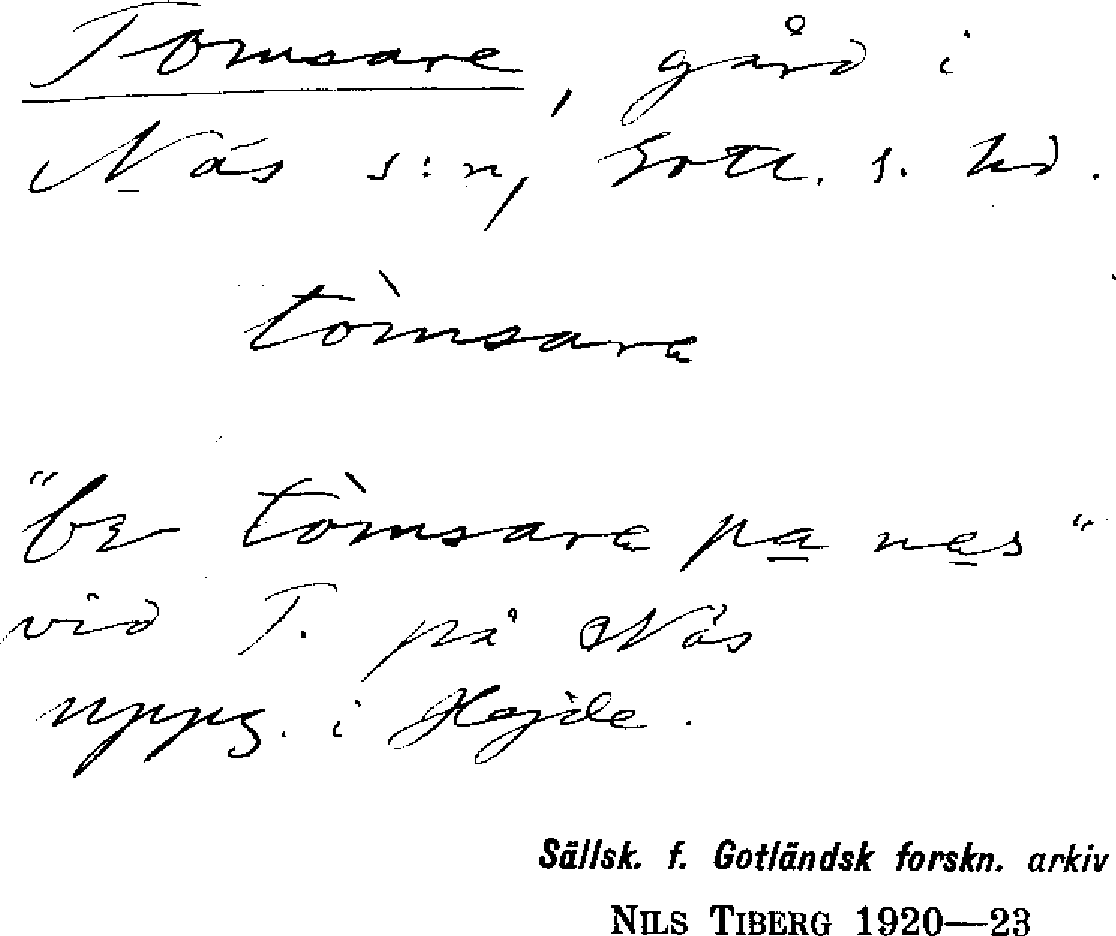 Tomsare, gård i
Näs s:n, Gotl. s. hd.
tòmsara
"be tòmsara pa nes"
vid T. på Näs
uppg. i Hejde.
Sällsk. f. Gotländsk forskn. arkiv
NILS TIBERG 1920—23